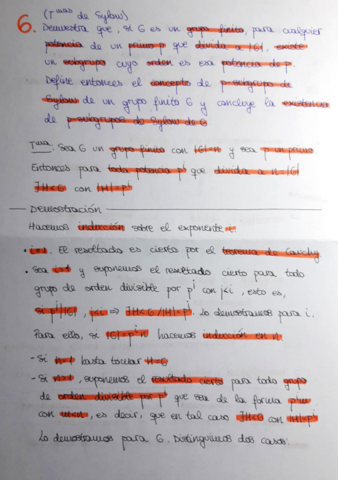 6. (Tmas de Sylow)
Demuestra que, si G es un grupo finito, para cualquier
potencia de un primo p que divida a |G|, existe
un subgrupo cuyo orden es esa potencia de p.
Define entonces el concepto de p-subgrupo de
Sylow de un grupo finito G y concluye la existencia
de p-subgrupos de Sylow de G
Tma: Sea G un grupo finito con |G|=n y sea p un primo
Entonces para toda potencia pⁱ que divida a n=|G|
∃H<G con |H|=pⁱ
Demostración
Hacemos inducción sobre el exponente i
• i=1. El resultado es cierto por el teorema de Cauchy
• Sea i>1 y suponemos el resultado cierto para todo
grupo de orden divisible por pʲ con j<i, esto es,
si pʲ/|G|, j<i ⇒ ∃H<G /|H|=pʲ. Lo demostramos para i.
Para ello, si |G|=pⁱn hacemos inducción en n
- Si n=1 basta tomar H=G
- Si n>1, suponemos el resultado cierto para todo grupo
de orden divisible por pⁱ que sea de la forma pⁱm
con m<n, es decir, que en tal caso ∃H<G con |H|=pⁱ
Lo demostramos para G. Distinguimos dos casos: